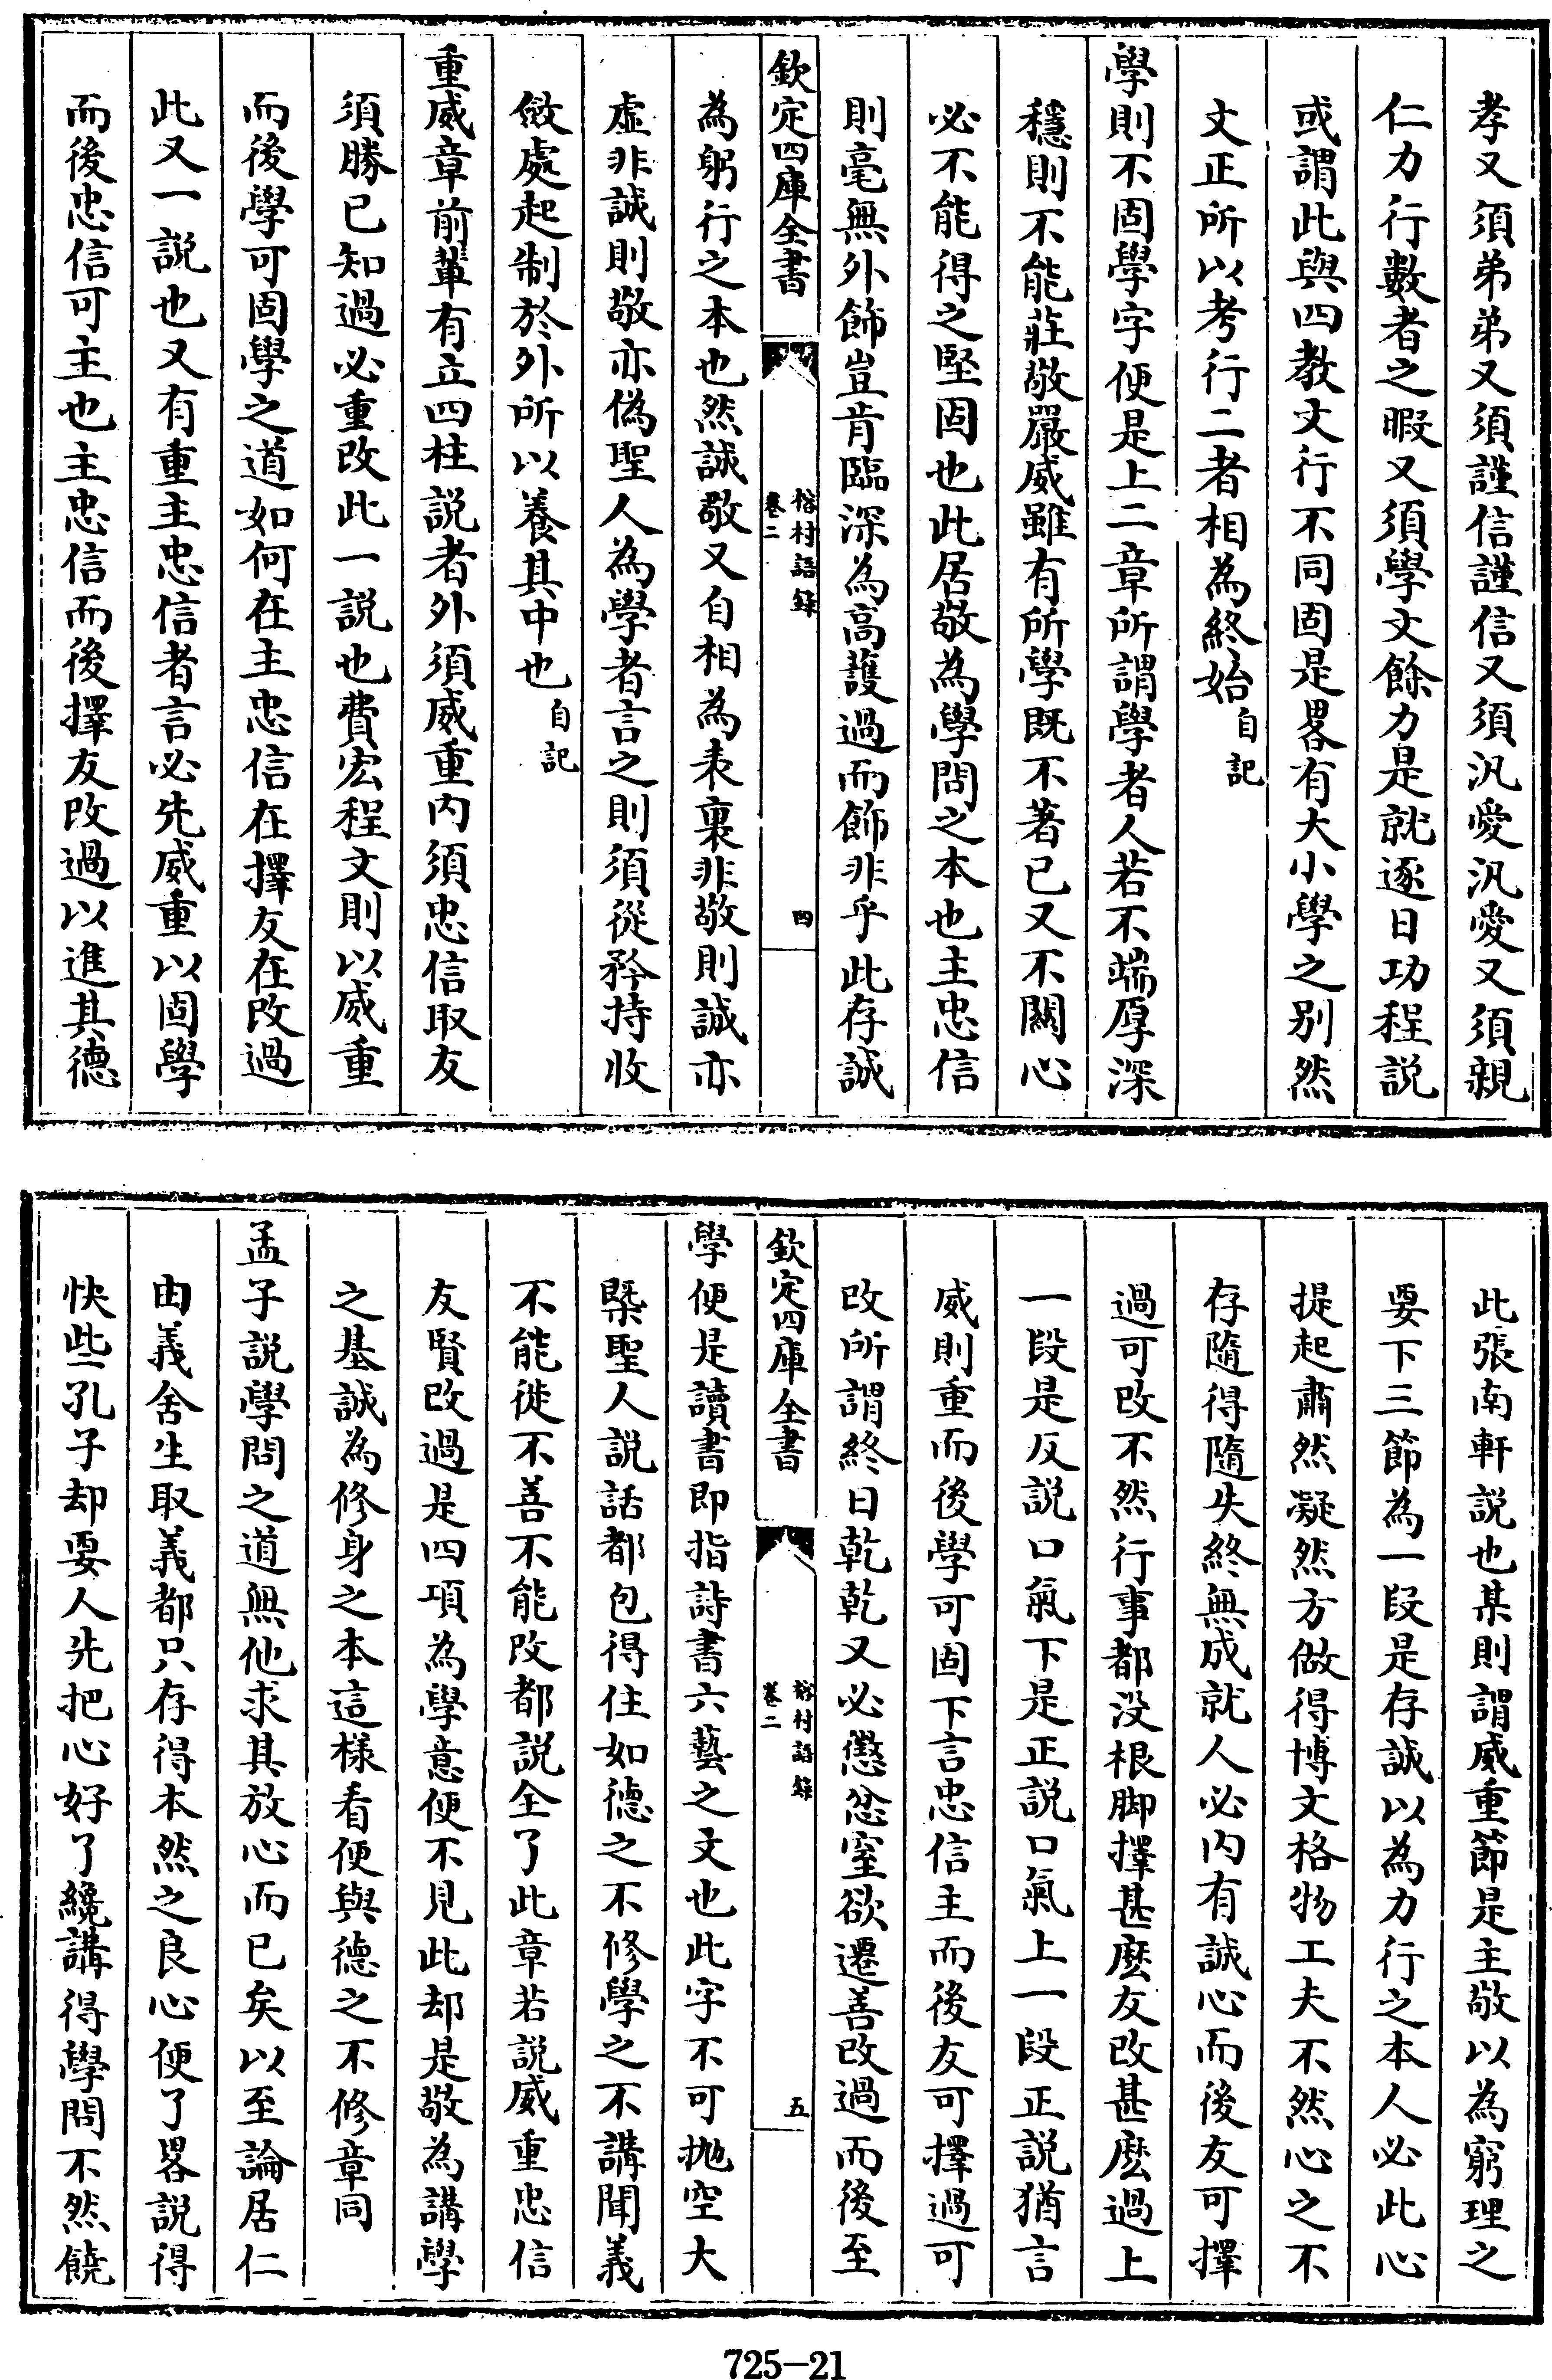 孝又須弟弟又須謹信謹信又須汎愛汎愛又須親
仁力行數者之暇又須學文餘力是就逐日功程説
或謂此與四教文行不同固是畧有大小學之别然
文正所以考行二者相為終始自記
學則不固學字便是上二章所謂學者人若不端厚深
穩則不能莊敬嚴威雖有所學既不著已又不關心
必不能得之堅固也此居敬為學問之本也主忠信
則毫無外飾豈肯臨深為高護過而飾非乎此存誠
欽定四庫全書
榕村語録
卷二
四
為躬行之本也然誠敬又自相為表裏非敬則誠亦
虚非誠則敬亦偽聖人為學者言之則須從矜持收
斂處起制於外所以養其中也自記
重威章前輩有立四柱説者外須威重内須忠信取友
須勝已知過必重改此一説也費宏程文則以威重
而後學可固學之道如何在主忠信在擇友在改過
此又一説也又有重主忠信者言必先威重以固學
而後忠信可主也主忠信而後擇友改過以進其德
此張南軒説也某則謂威重節是主敬以為窮理之
要下三節為一段是存誠以為力行之本人必此心
提起肅然凝然方做得博文格物工夫不然心之不
存隨得隨失終無成就人必内有誠心而後友可擇
過可改不然行事都没根脚擇甚麽友改甚麽過上
一段是反説口氣下是正説口氣上一段正説猶言
威則重而後學可固下言忠信主而後友可擇過可
改所謂終日乾乾又必懲忿窒欲遷善改過而後至
欽定四庫全書
榕村語録
卷二
五
學便是讀書即指詩書六藝之文也此字不可抛空大
槩聖人説話都包得住如德之不修學之不講聞義
不能徙不善不能改都説全了此章若説威重忠信
友賢改過是四項為學意便不見此却是敬為講學
之基誠為修身之本這様看便與德之不修章同
孟子説學問之道無他求其放心而已矣以至論居仁
由義舍生取義都只存得本然之良心便了畧説得
快些孔子却要人先把心好了纔講得學問不然饒
725-21